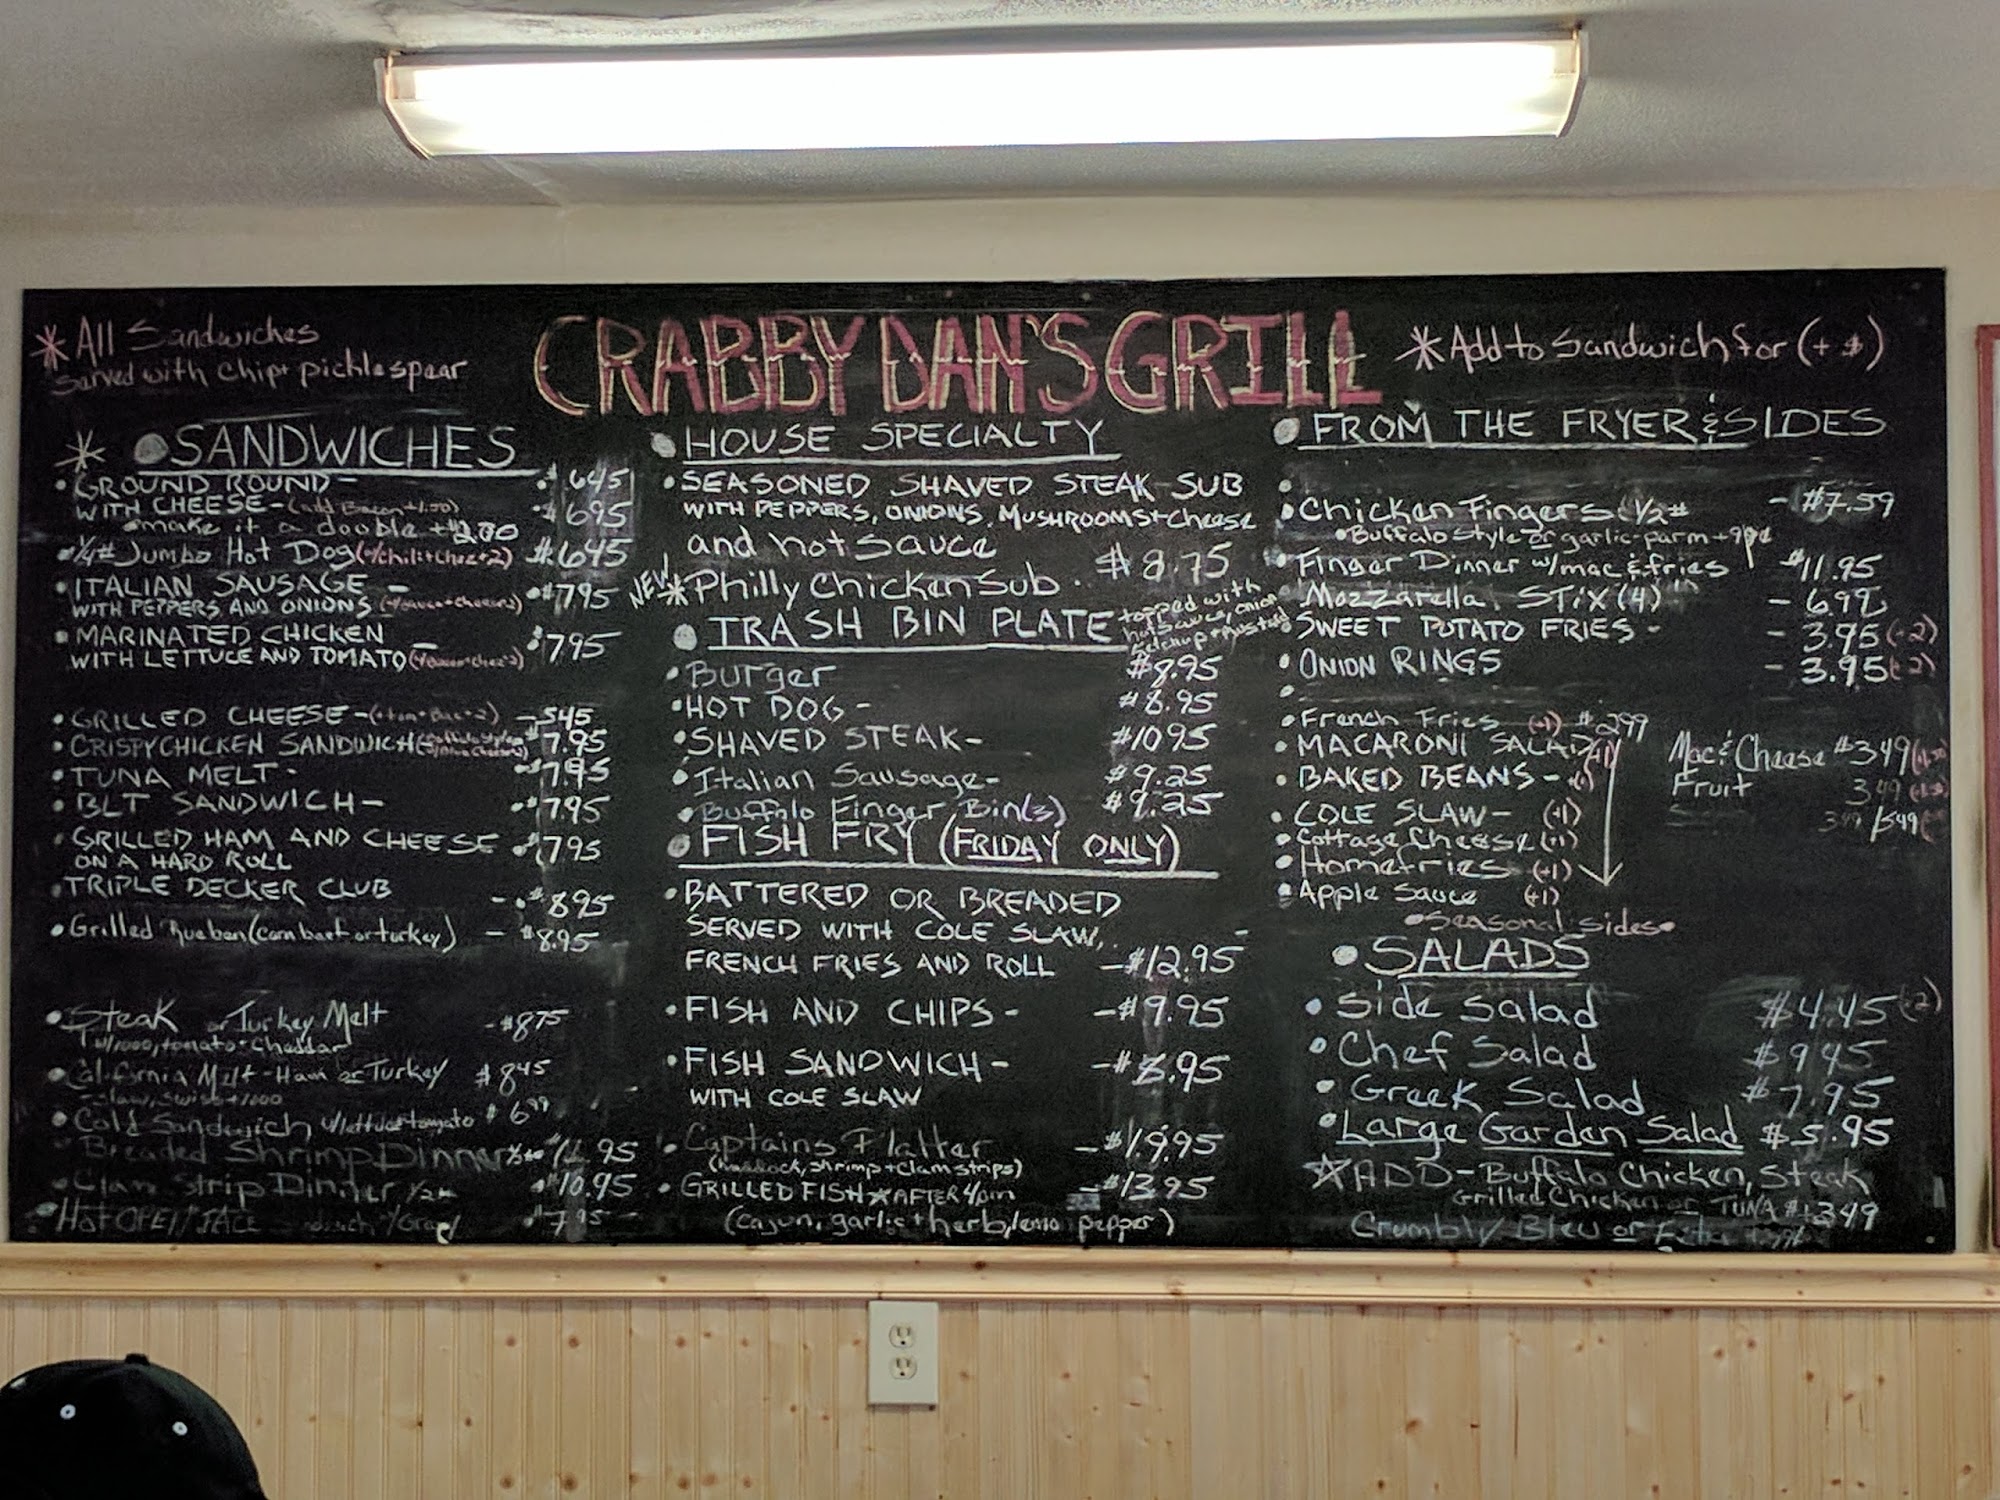 CRABBY DAN'S GRILL
* All Sandwiches
served with chip + pickle spear
* SANDWICHES
GROUND ROUND - $6.45
WITH CHEESE - (add Bacon +1.50) $6.95
*make it a double +$2.00
1/4# Jumbo Hot Dog $6.45
ITALIAN SAUSAGE -
WITH PEPPERS AND ONIONS $7.95
MARINATED CHICKEN
WITH LETTUCE AND TOMATO $7.95
GRILLED CHEESE - - 5.45
CRISPY CHICKEN SANDWICH $7.95
TUNA MELT - $7.95
BLT SANDWICH - $7.95
GRILLED HAM AND CHEESE
ON A HARD ROLL $7.95
TRIPLE DECKER CLUB - $8.95
Grilled Rueben (corn beef or turkey) - $8.95
Steak or Turkey Melt - $8.75
w/1000, tomato + Cheddar
California Melt - Ham or Turkey $8.45
- slaw, swiss + 1000
Cold Sandwich w/lettuce + tomato $6.99
Breaded Shrimp Dinner
Clam Strip Dinner 1/2# $10.95
Hot OPEN FACE Sandwich w/Gravy $7.95
HOUSE SPECIALTY
SEASONED SHAVED STEAK SUB
WITH PEPPERS, ONIONS, MUSHROOMS + Cheese
and hot sauce $8.75
NEW * Philly Chicken Sub
TRASH BIN PLATE
topped with
hot sauce, onion
ketchup + mustard
Burger $8.95
HOT DOG - $8.95
SHAVED STEAK - $10.95
Italian Sausage - $9.25
Buffalo Finger Bin (3) $9.25
FISH FRY (FRIDAY ONLY)
BATTERED OR BREADED
SERVED WITH COLE SLAW,
FRENCH FRIES AND ROLL - $12.95
FISH AND CHIPS - - $9.95
FISH SANDWICH - - $8.95
WITH COLE SLAW
Captains Platter - $19.95
(haddock, shrimp + clam strips)
GRILLED FISH * AFTER 4pm - $13.95
(cajun, garlic + herb, lemon pepper)
* Add to Sandwich for (+ $)
FROM THE FRYER & SIDES
Chicken Fingers (1/2# - $7.59
Buffalo Style or garlic-parm +99¢
Finger Dinner w/mac & fries $11.95
Mozzarella STIX (4) - 6.99
SWEET POTATO FRIES - - 3.95 (+2)
ONION RINGS - 3.95 (+2)
French Fries (+1) $2.99
MACARONI SALAD (+1)
BAKED BEANS - (+1)
COLE SLAW - (+1)
Cottage Cheese (+1)
Homefries (+1)
Apple Sauce (+1)
Mac & Cheese $3.49 (+1.50)
Fruit 3.49
3.99/5.49
Seasonal sides
SALADS
Side Salad $4.45 (+2)
Chef Salad $9.45
Greek Salad $7.95
Large Garden Salad $5.95
* ADD - Buffalo Chicken, Steak
Grilled Chicken or TUNA $3.49
Crumbly Bleu or Feta